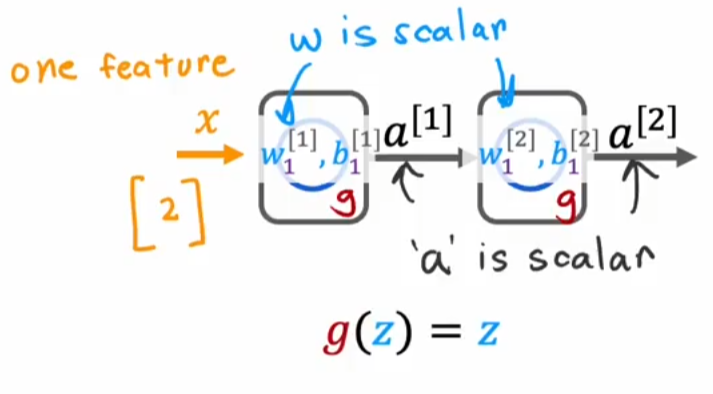 w is scalar
one feature
x
w₁^[1], b₁^[1] a^[1] w₁^[2], b₁^[2] a^[2]
g g
[2]
'a' is scalar
g(z) = z